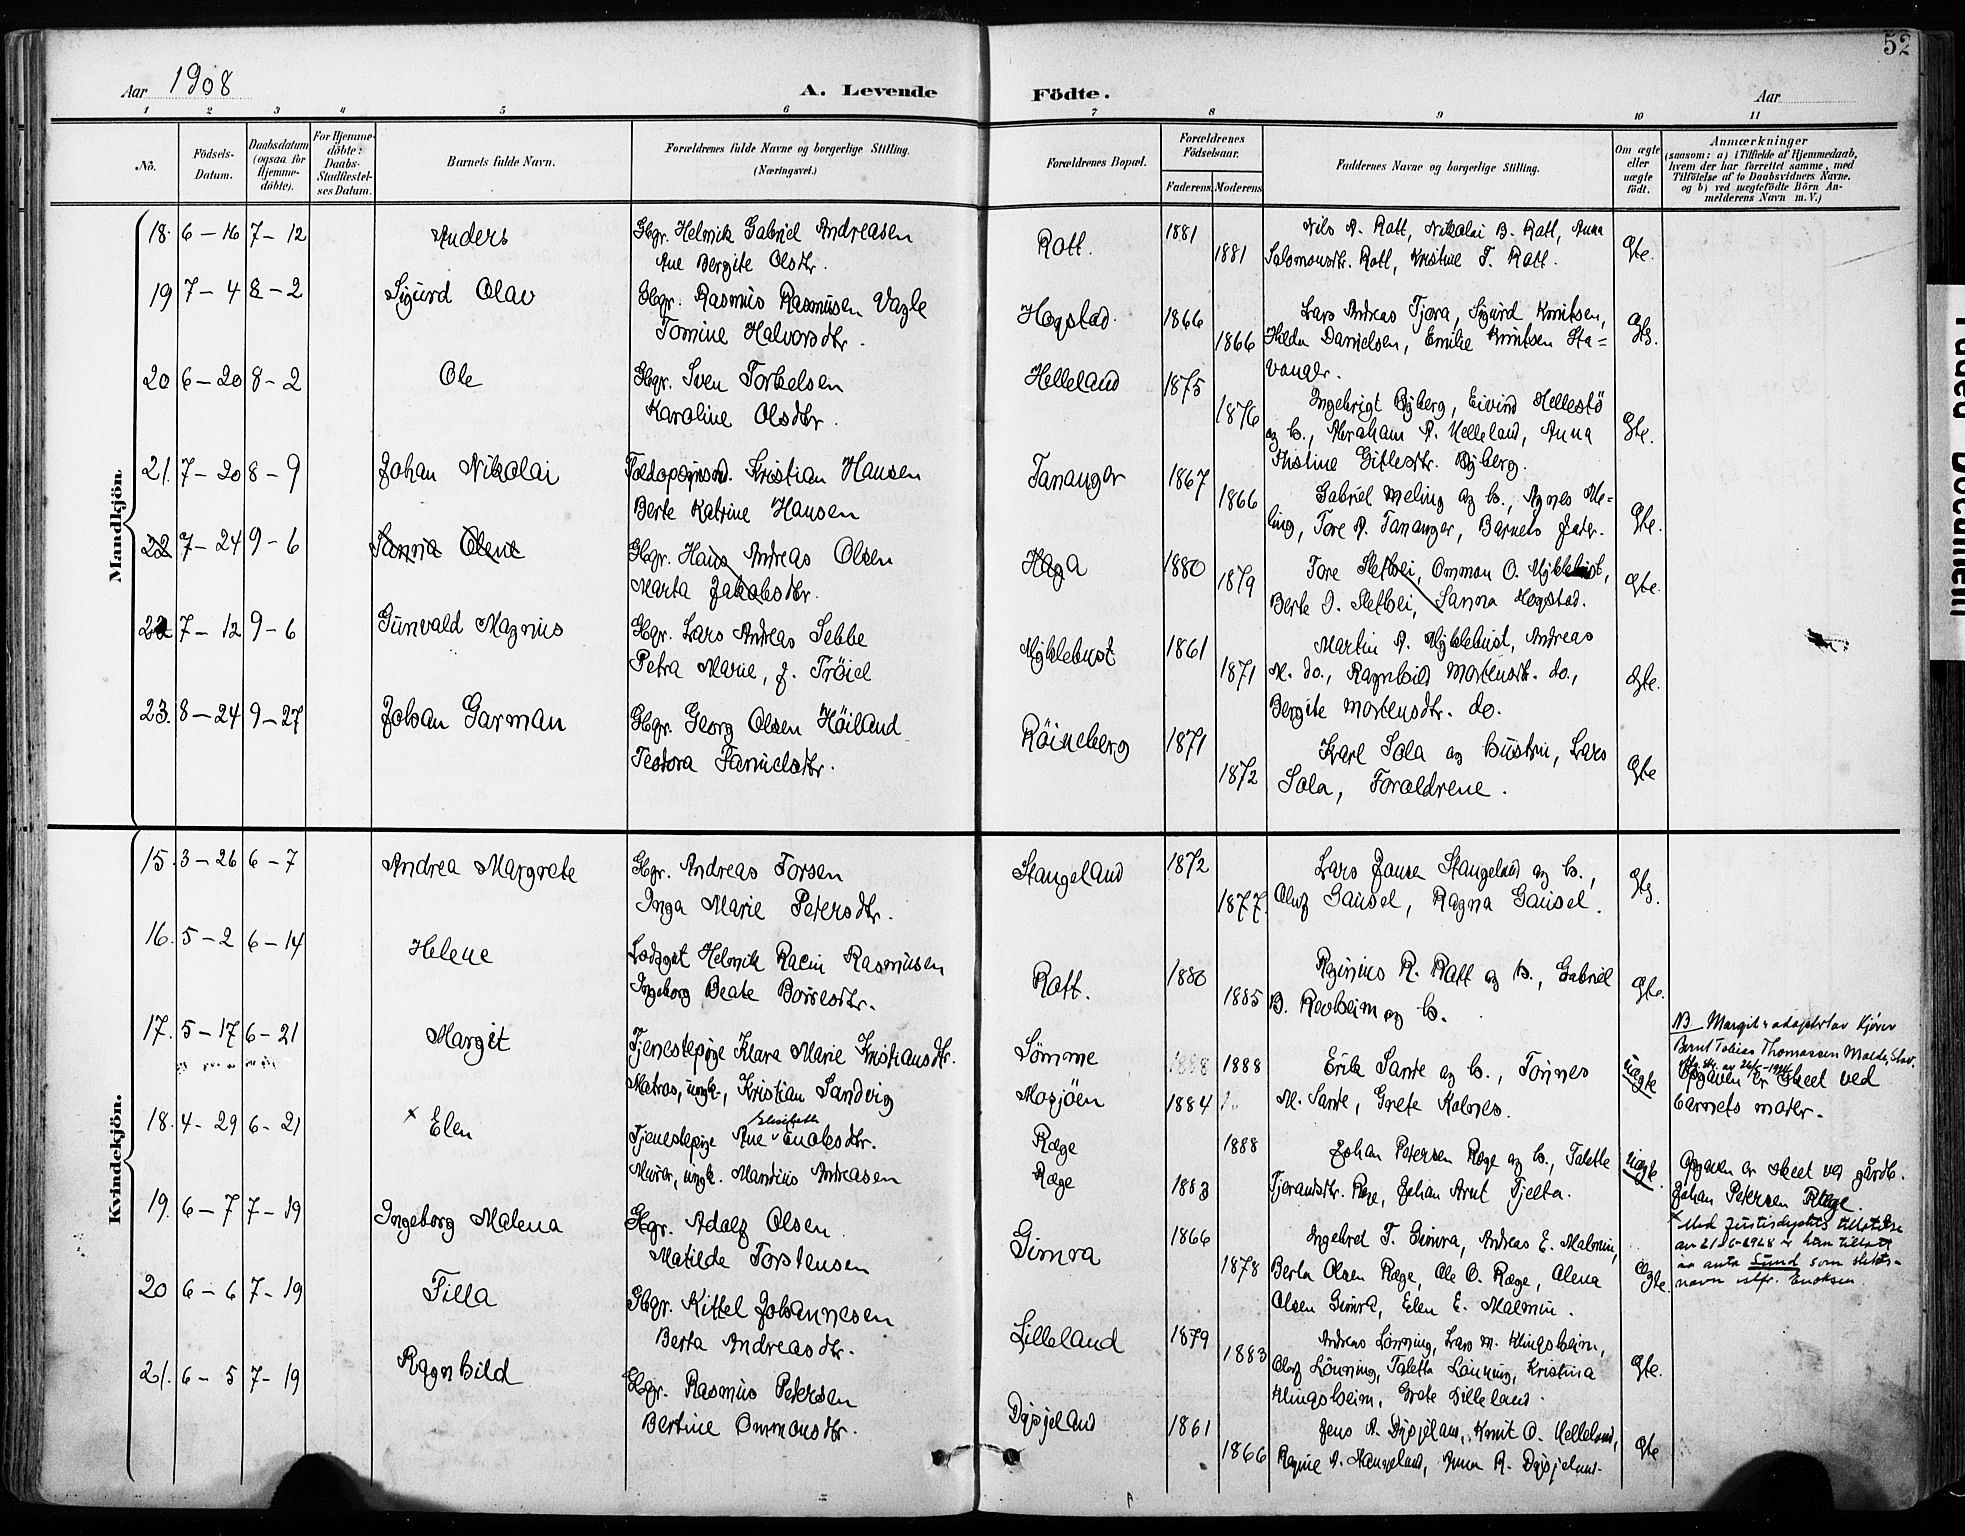 52
Aar 1908
A. Levende
Födte.
Aar
1 2 3 4 5 6 7 8 9 10 11
No.
Födsels-Datum.
Daabsdatum (ogsaa for Hjemme-döbte).
For Hjemme-döbte: Daabs-Stadfæstel-ses Datum.
Barnets fulde Navn.
Forældrenes fulde Navne og borgerlige Stilling. (Næringsvei.)
Forældrenes Bopæl.
Forældrenes Födselsaar.
Faderens
Moderens
Faddernes Navne og borgerlige Stilling.
Om ægte eller uægte födt.
Anmærkninger
(saasom: a) i Tilfælde af Hjemmedaab, hvem der har forrettet samme, med Tilföielse af to Daabsvidners Navne, og b) ved uægtefödte Börn An-melderens Navn m. V.)
Mandkjön.
18. 6-16 7-12 Anders
Gbgr. Helmik Gabriel Andreasen
Ane Bergite Olsdtr.
Rott. 1881 1881
Nils A. Rott, Nikolai B. Rott, Anna
Salomonsdtr. Rott, Kristine T. Rott.
Gte.
19 7-4 8-2 Sigurd Olav
Gbgr. Rasmus Rasmusen Vagle
Tomine Halvorsdtr.
Hogstad. 1866 1866
Lars Andreas Tjora, Sigurd Knutsen,
Hilda Danielsen, Emilie Knutsen Sta=
vanger.
20 6-20 8-2 Ole
Gbgr. Sven Torkelsen
Karoline Olsdtr.
Helleland 1875 1876
Ingebrigt Byberg, Eivind Hellestö
og h., Abraham A. Helleland, Anna
Kristine Gitlesdtr. Byberg.
Gte.
21. 7-20 8-9 Johan Nikolai
Kristian Hansen
Berte Katrine Hansen
Tananger 1867 1866
Gabriel Meling og h., Agnes Me-
ling, Tore A. Tananger, Barnets Fader.
Gte.
22 7-24 9-6 Sanna Olene
Gbgr. Hans Andreas Olsen
Marta Jakobsdtr.
Haga 1880 1879
Tore Sletbei, Omman O. Myklebust,
Berte O. Sletbei, Sanna Hogstad.
Gte.
22 7-12 9-6 Gunvald Magnus
Gbgr. Lars Andreas Sebbe
Petra Marie, f. Tröiel
Myklebust 1861 1871
Martin A. Myklebust, Andreas
M. do., Ragnhild Mortensdtr. do.,
Bergite Mortensdtr. do.
Gte.
23. 8-24 9-27 Johan Garman
Gbgr. Georg Olsen Höiland
Teodora Danielsdtr.
Röineberg 1871 1872
Karl Sola og hustru, Lars
Sola, Forældrene.
Gte
Kvindekjön.
15. 3-26 6-7 Andrea Margrete
Gbgr. Andreas Torsen
Inga Marie Petersdtr.
Stangeland 1872 1877.
Lars Jansen Stangeland og h.,
Oluf Gausel, Ragna Gausel.
16. 5-2 6-14 Helene
Helmik Racin Rasmusen
Ingeborg Beate Borresdtr.
Rott. 1880 1885
Reginius R. Rott og h., Gabriel
B. Revheim og h.
Gte.
17. 5-17 6-21 Margit
Tjenestepige Klara Marie Kristiansdtr.
Matros, ungk., Kristian Sandvig
Sömme 1888
Mosjöen 1884
Erik Sante og h., Tönnes
M. Sante, Grete Kolnes.
uægte
NB Margit adoptert av
Bernt Tobias Thomassen Molde, Stav.
Opgaven er skeet ved
barnets moder.
18. 4-29 6-21 × Elen
Tjenestepige Ane Elisabeth Enoksdtr.
Murer, ungk. Mandius Andreasen
Ræge 1888
Ræge 1883
Johan Petersen Ræge og h., Talette
Tjorandsdtr. Ræge, Johan Arnt Tjelta.
uægte.
Opgaven er skeet ved gårdb.
Johan Petersen Ræge.
× Med Justisdeptets tillatelse
av 21/6-1928 er hun tillatt
aa anta Sund som slekts-
navn istf. Enoksen.
19. 6-7 7-19 Ingeborg Malena
Gbgr. Adolf Olsen
Matilde Torstensen
Gimra 1866 1878
Ingebret T. Gimra, Andreas E. Malmin,
Berta Olsen Ræge, Ole O. Ræge, Olena
Olsen Gimra, Elen E. Malmin.
Gte.
20 6-6 7-19 Tilla
Gbgr. Kittel Johannesen
Berta Andreasdtr.
Lilleland 1879 1883
Andreas Lönning, Lars M. Klingsheim,
Oluf Lönning, Taletta Lönning, Kristina
Klingsheim, Grete Lilleland.
Gte.
21. 6-5 7-19 Ragnhild
Gbgr. Rasmus Petersen
Bertine Ommonsdtr.
Dysjeland 1861 1866
Jens A. Dysjeland, Knut O. Helleland,
Regine A. Stangeland, Anna R. Dysjeland.
Gte